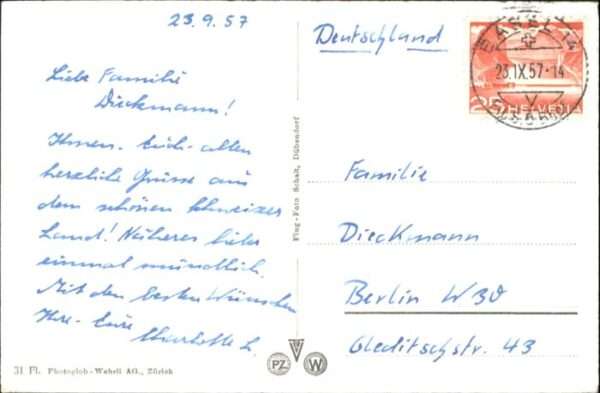 23.9.57
Liebe Familie
Dieckmann!
Ihnen - Euch - allen
herzliche Grüsse aus
dem schönen Schweizer
Land! Näheres lieber
einmal mündlich.
Mit den besten Wünschen
Ihre - Eure
Charlotte L.
31 Fl. Photoglob-Wehrli AG., Zürich
Flug-Foto Schait, Dübendorf
PZ
W
Deutschland
BASEL 14
23.IX.57-14
HELVETIA
Familie
Dieckmann
Berlin W 30
Gleditschstr. 43